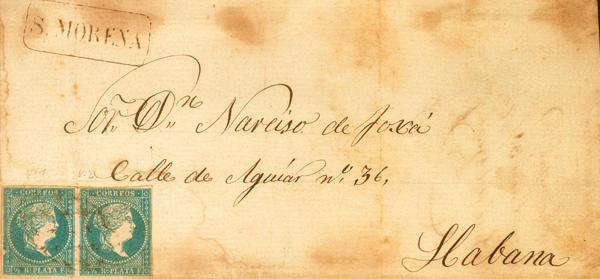 S. MORENA
Sor. Dn. Narciso de Foxá
Calle de Aguiar no. 36,
Habana
CORREOS CORREOS
½ Rl. PLATA F. ½ Rl. PLATA F.